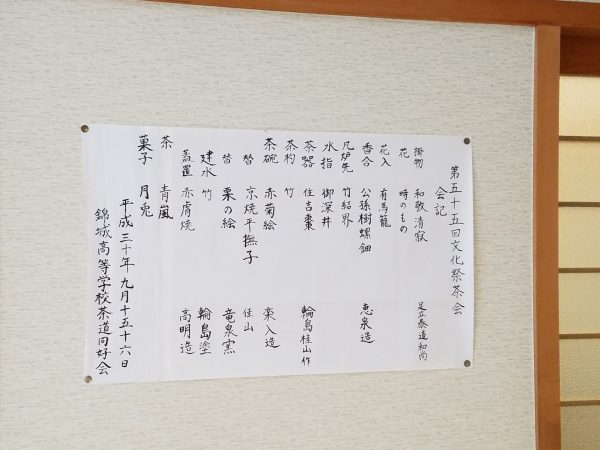 第五十五回文化祭茶会
会記
掛物 和敬清寂 足立泰道和尚
花 時のもの
花入 有馬籠
香合 公孫樹螺鈿 恵泉造
風炉先 竹組界
水指 御深井
茶器 住吉棗 輪島桂山作
茶杓 竹
茶碗 赤菊絵 楽入造
替 京焼平撫子 佳山
替 栗の絵 竜泉窯
建水 竹 輪島塗
蓋置 赤膚焼 高明造
茶 青嵐
菓子 月兎
平成三十年九月十五十六日
錦城高等学校茶道同好会